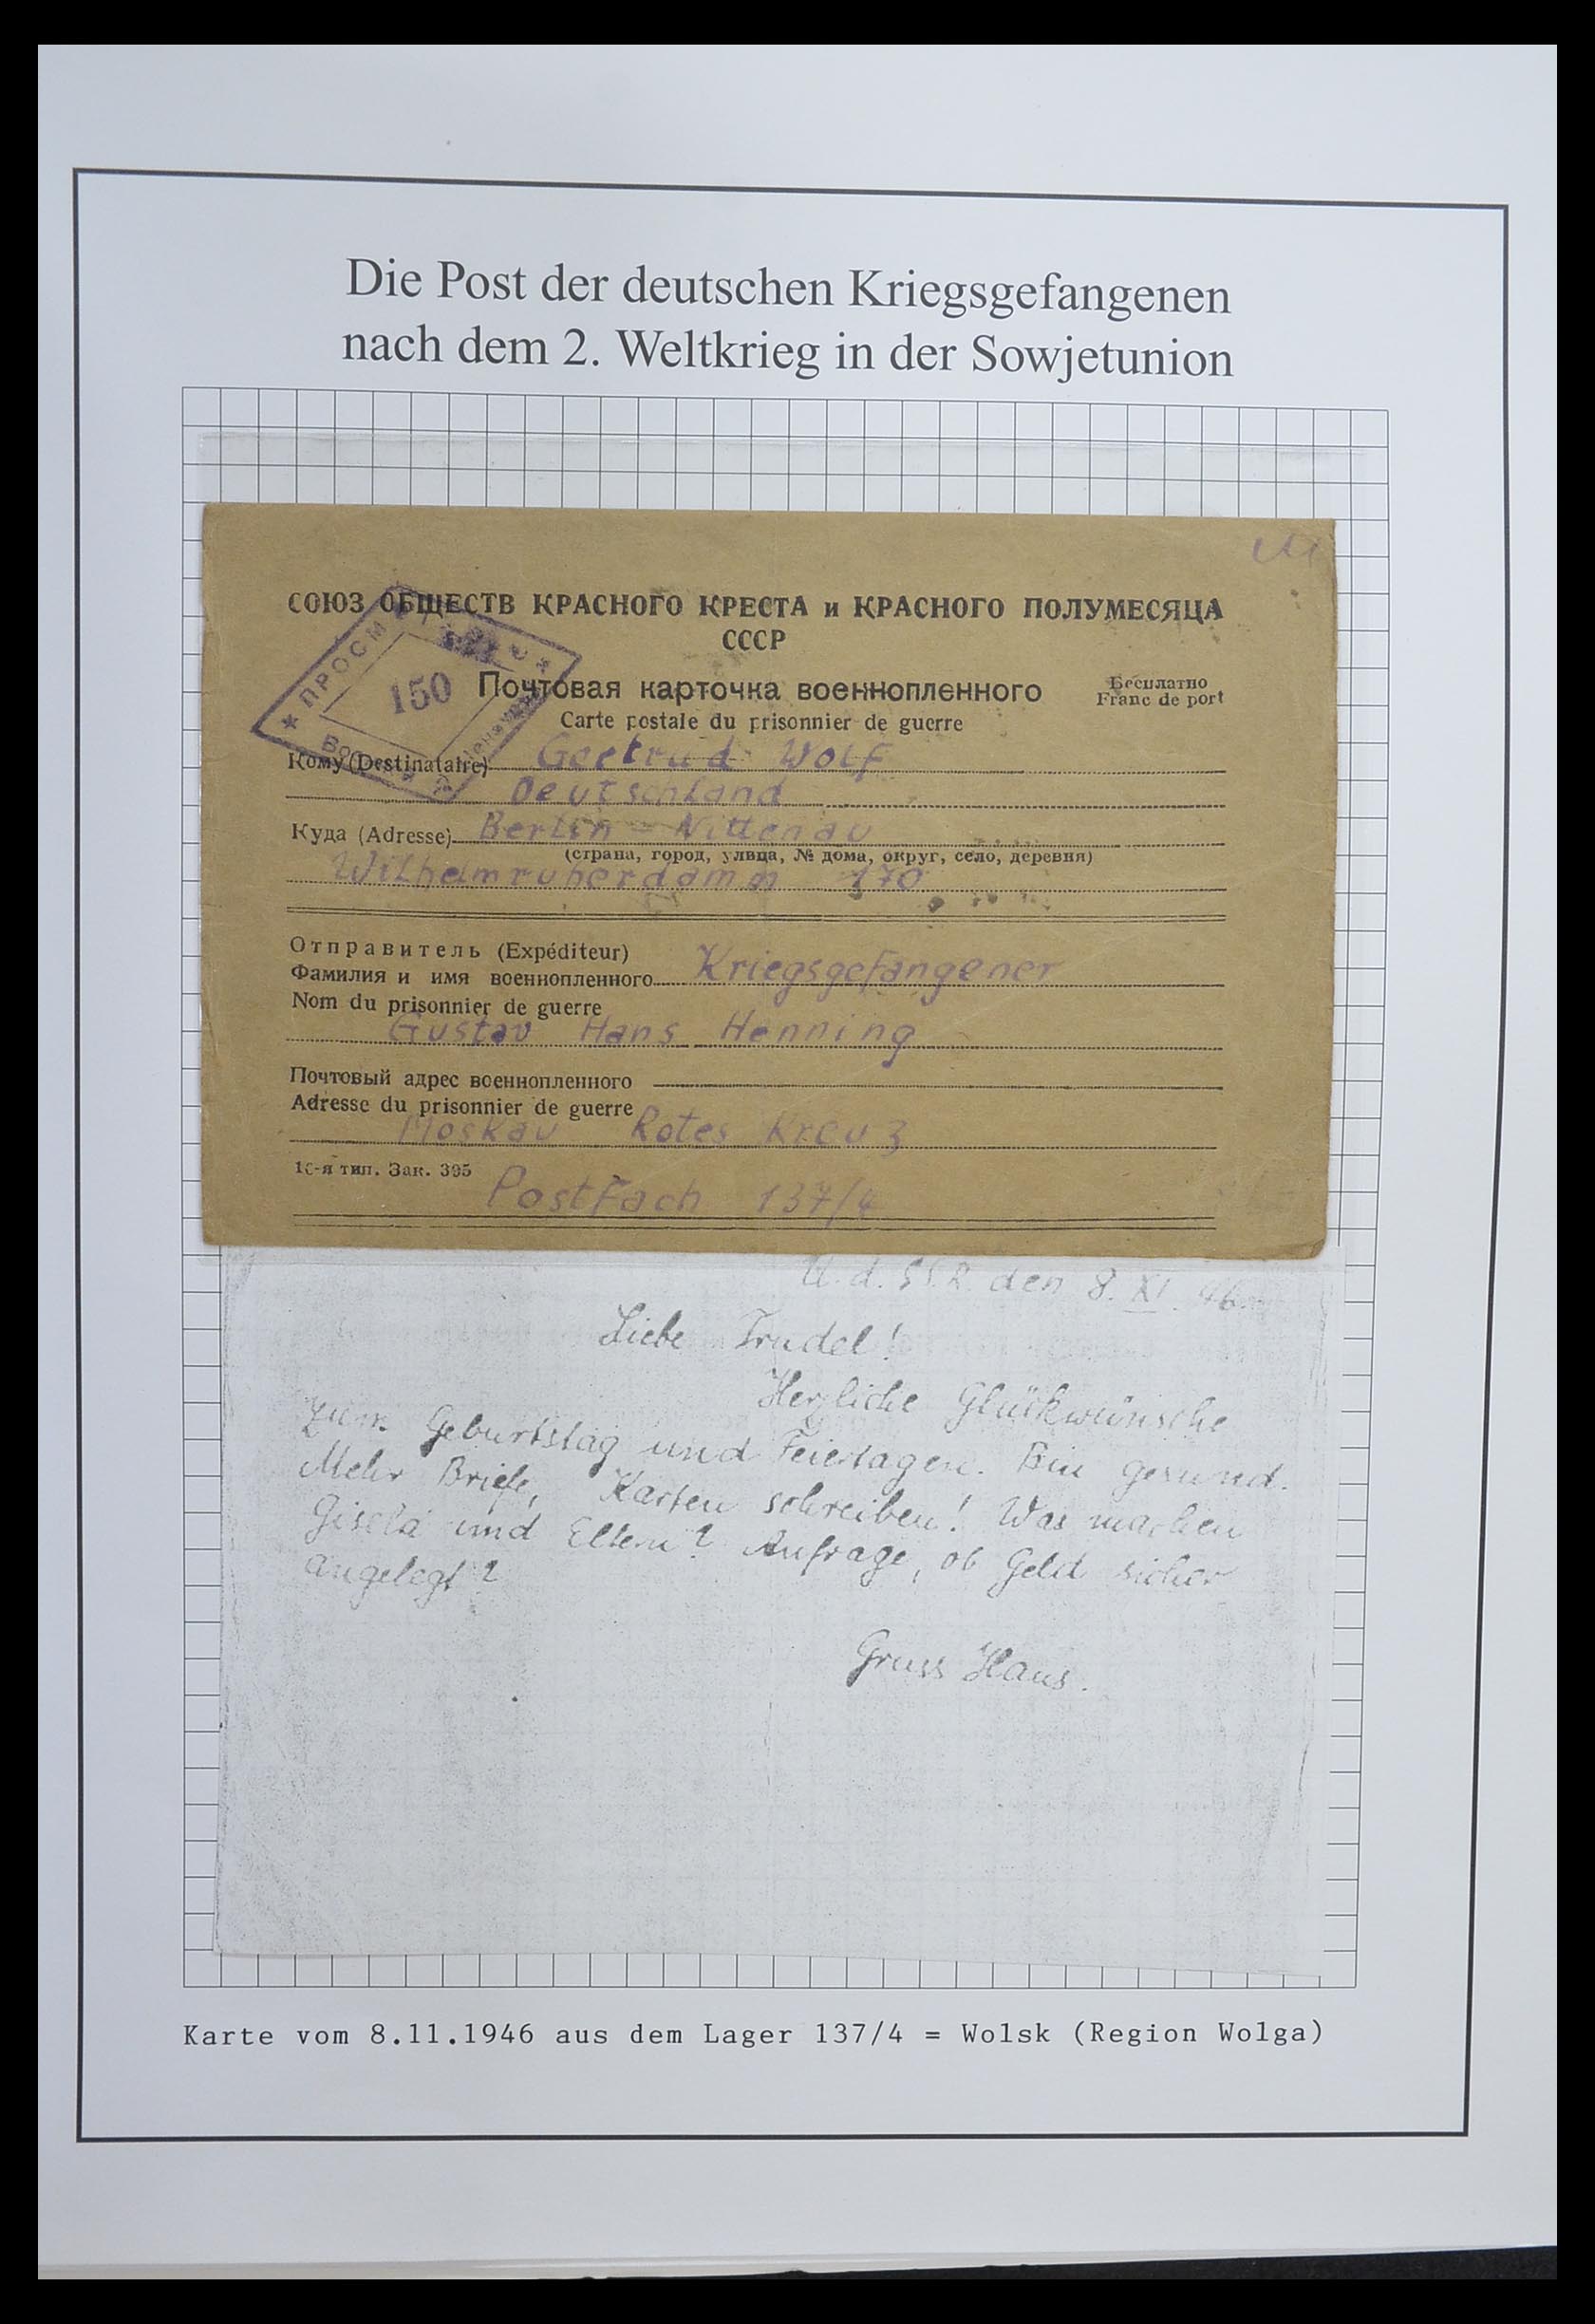 Die Post der deutschen Kriegsgefangenen
nach dem 2. Weltkrieg in der Sowjetunion
СОЮЗ ОБЩЕСТВ КРАСНОГО КРЕСТА и КРАСНОГО ПОЛУМЕСЯЦА
СССР
ПРОСМ
150
Почтовая карточка военнопленного
Бесплатно
Franc de port
Carte postale du prisonnier de guerre
Кому (Destinataire) Gertrud Wolf
Deutschland
Куда (Adresse) Berlin - Wittenau
(страна, город, улица, № дома, округ, село, деревня)
Wilhelmruherdamm 170
Отправитель (Expéditeur)
Фамилия и имя военнопленного Kriegsgefangener
Nom du prisonnier de guerre
Gustav Hans Henning
Почтовый адрес военнопленного
Adresse du prisonnier de guerre
Moskau Rotes Kreuz
16-я тип. Зак. 395
Postfach 137/4
U.d.SS.R. den 8. XI. 46
Liebe Trudel!
Herzliche Glückwünsche
zum Geburtstag und Feiertagen. Bin gesund.
Mehr Briefe, Karten schreiben! Was machen
Gisela und Eltern? Anfrage, ob Geld sicher
angelegt?
Gruss Hans.
Karte vom 8.11.1946 aus dem Lager 137/4 = Wolsk (Region Wolga)